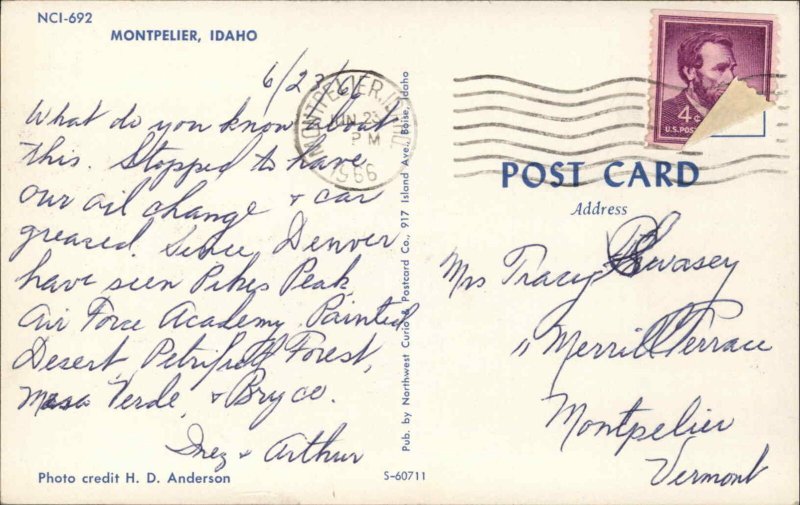 NCI-692
MONTPELIER, IDAHO
6/23/66
What do you know about
this. Stopped to have
our oil change & car
greased. Since Denver
have seen Pikes Peak
Air Force Academy, Painted
Desert, Petrified Forest,
Mesa Verde, & Bryce.
Inez & Arthur
Photo credit H. D. Anderson
S-60711
Pub. by Northwest Curio & Postcard Co., 917 Island Ave., Boise, Idaho
MONTPELIER, ID
JUN 23
PM
1966
4¢
U.S. POST
POST CARD
Address
Mrs Tracy Swasey
11 Merrill Terrace
Montpelier
Vermont